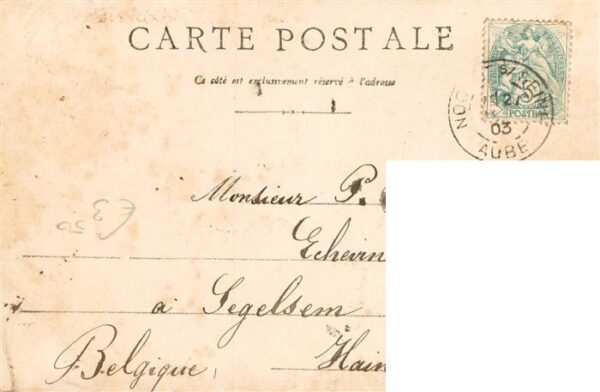 CARTE POSTALE
Ce côté est exclusivement réservé à l'adresse
S/SEINE
12
03
AUBE
POSTE
Monsieur P.
Echevin
à Segelsem
Belgique, Hain
£3
50